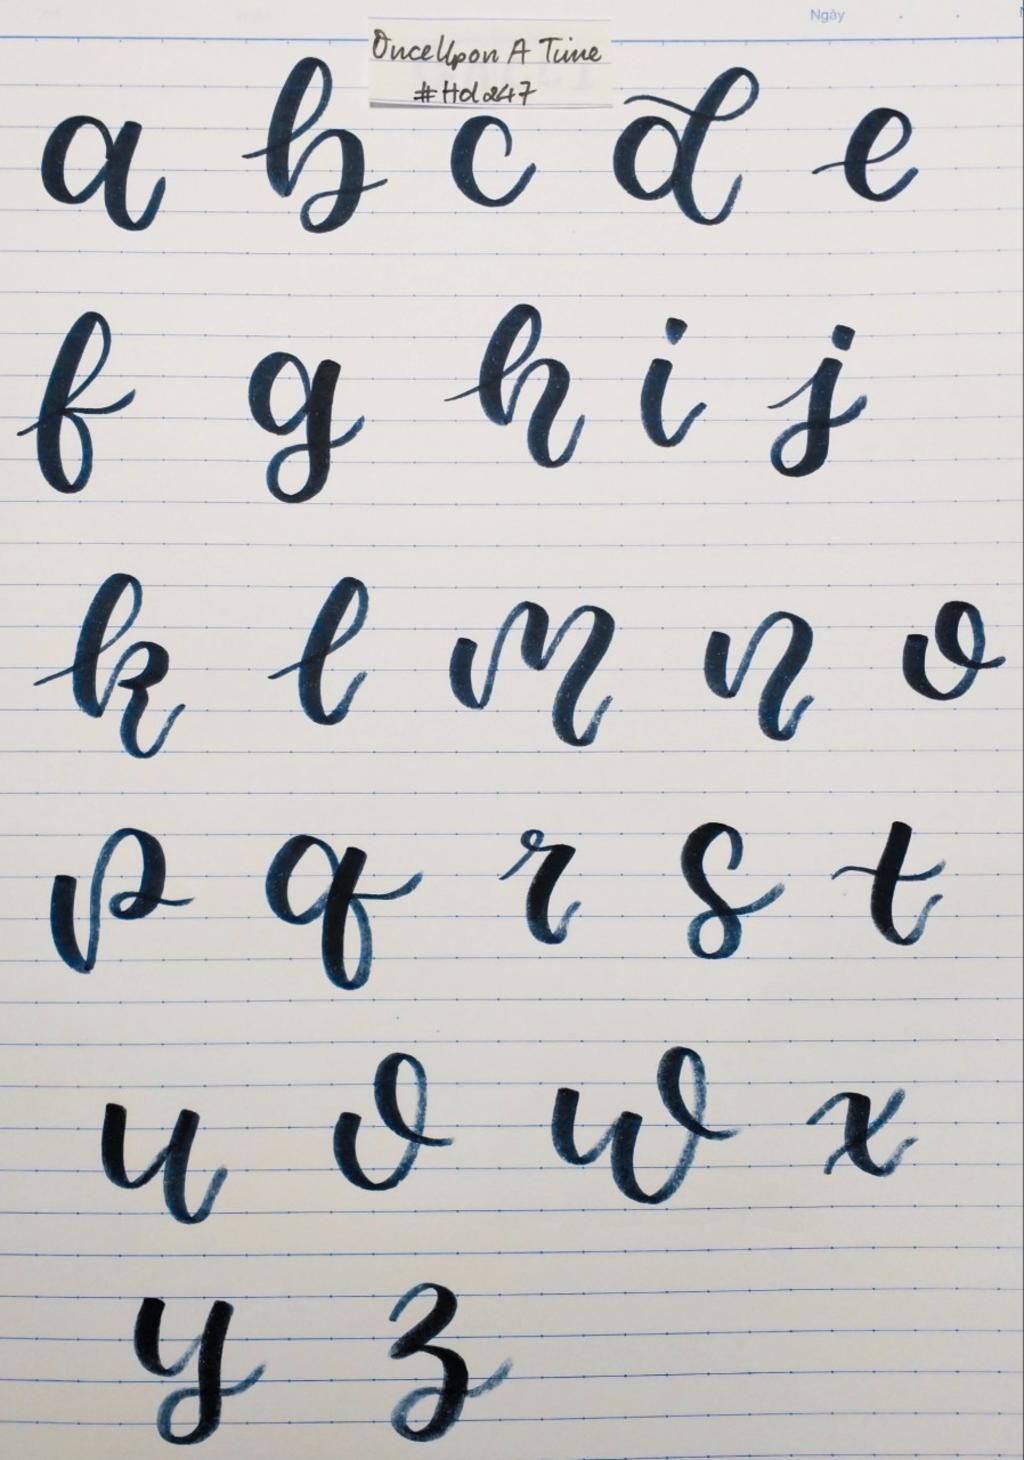 Ngày
OnceUpon A Time
#Hdl247
a b c d e
f g h i j
k l m n o
p q r s t
u v w x
y z